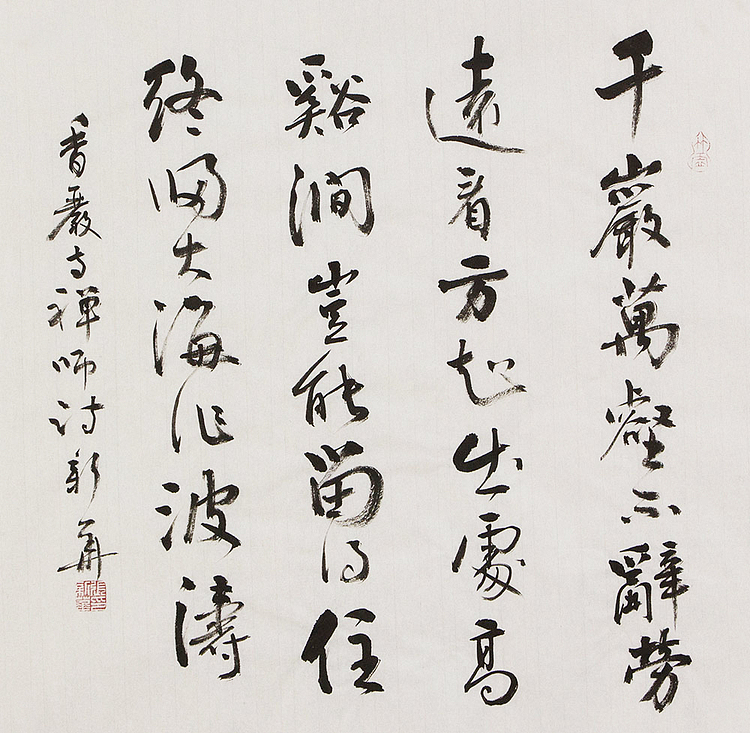 千巖萬壑不辭勞
遠看方知出處高
谿澗豈能留得住
終歸大海作波濤
香嚴寺禪師詩 新華